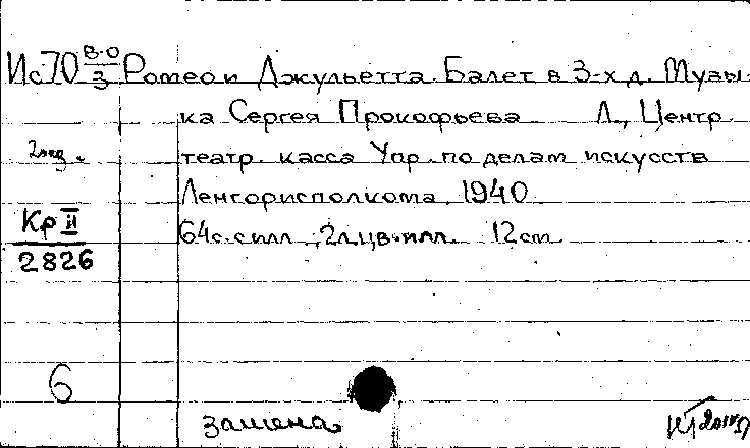 Ис70 В-О/3 Ромео и Джульетта. Балет в 3-х д. Музы-
ка Сергея Прокофьева Л., Центр
2 экз.
театр. касса Упр. по делам искусств
Ленгорисполкома. 1940
Кр II
2826
64с. с илл.; 2л.цв.илл. 12см.
6
замена